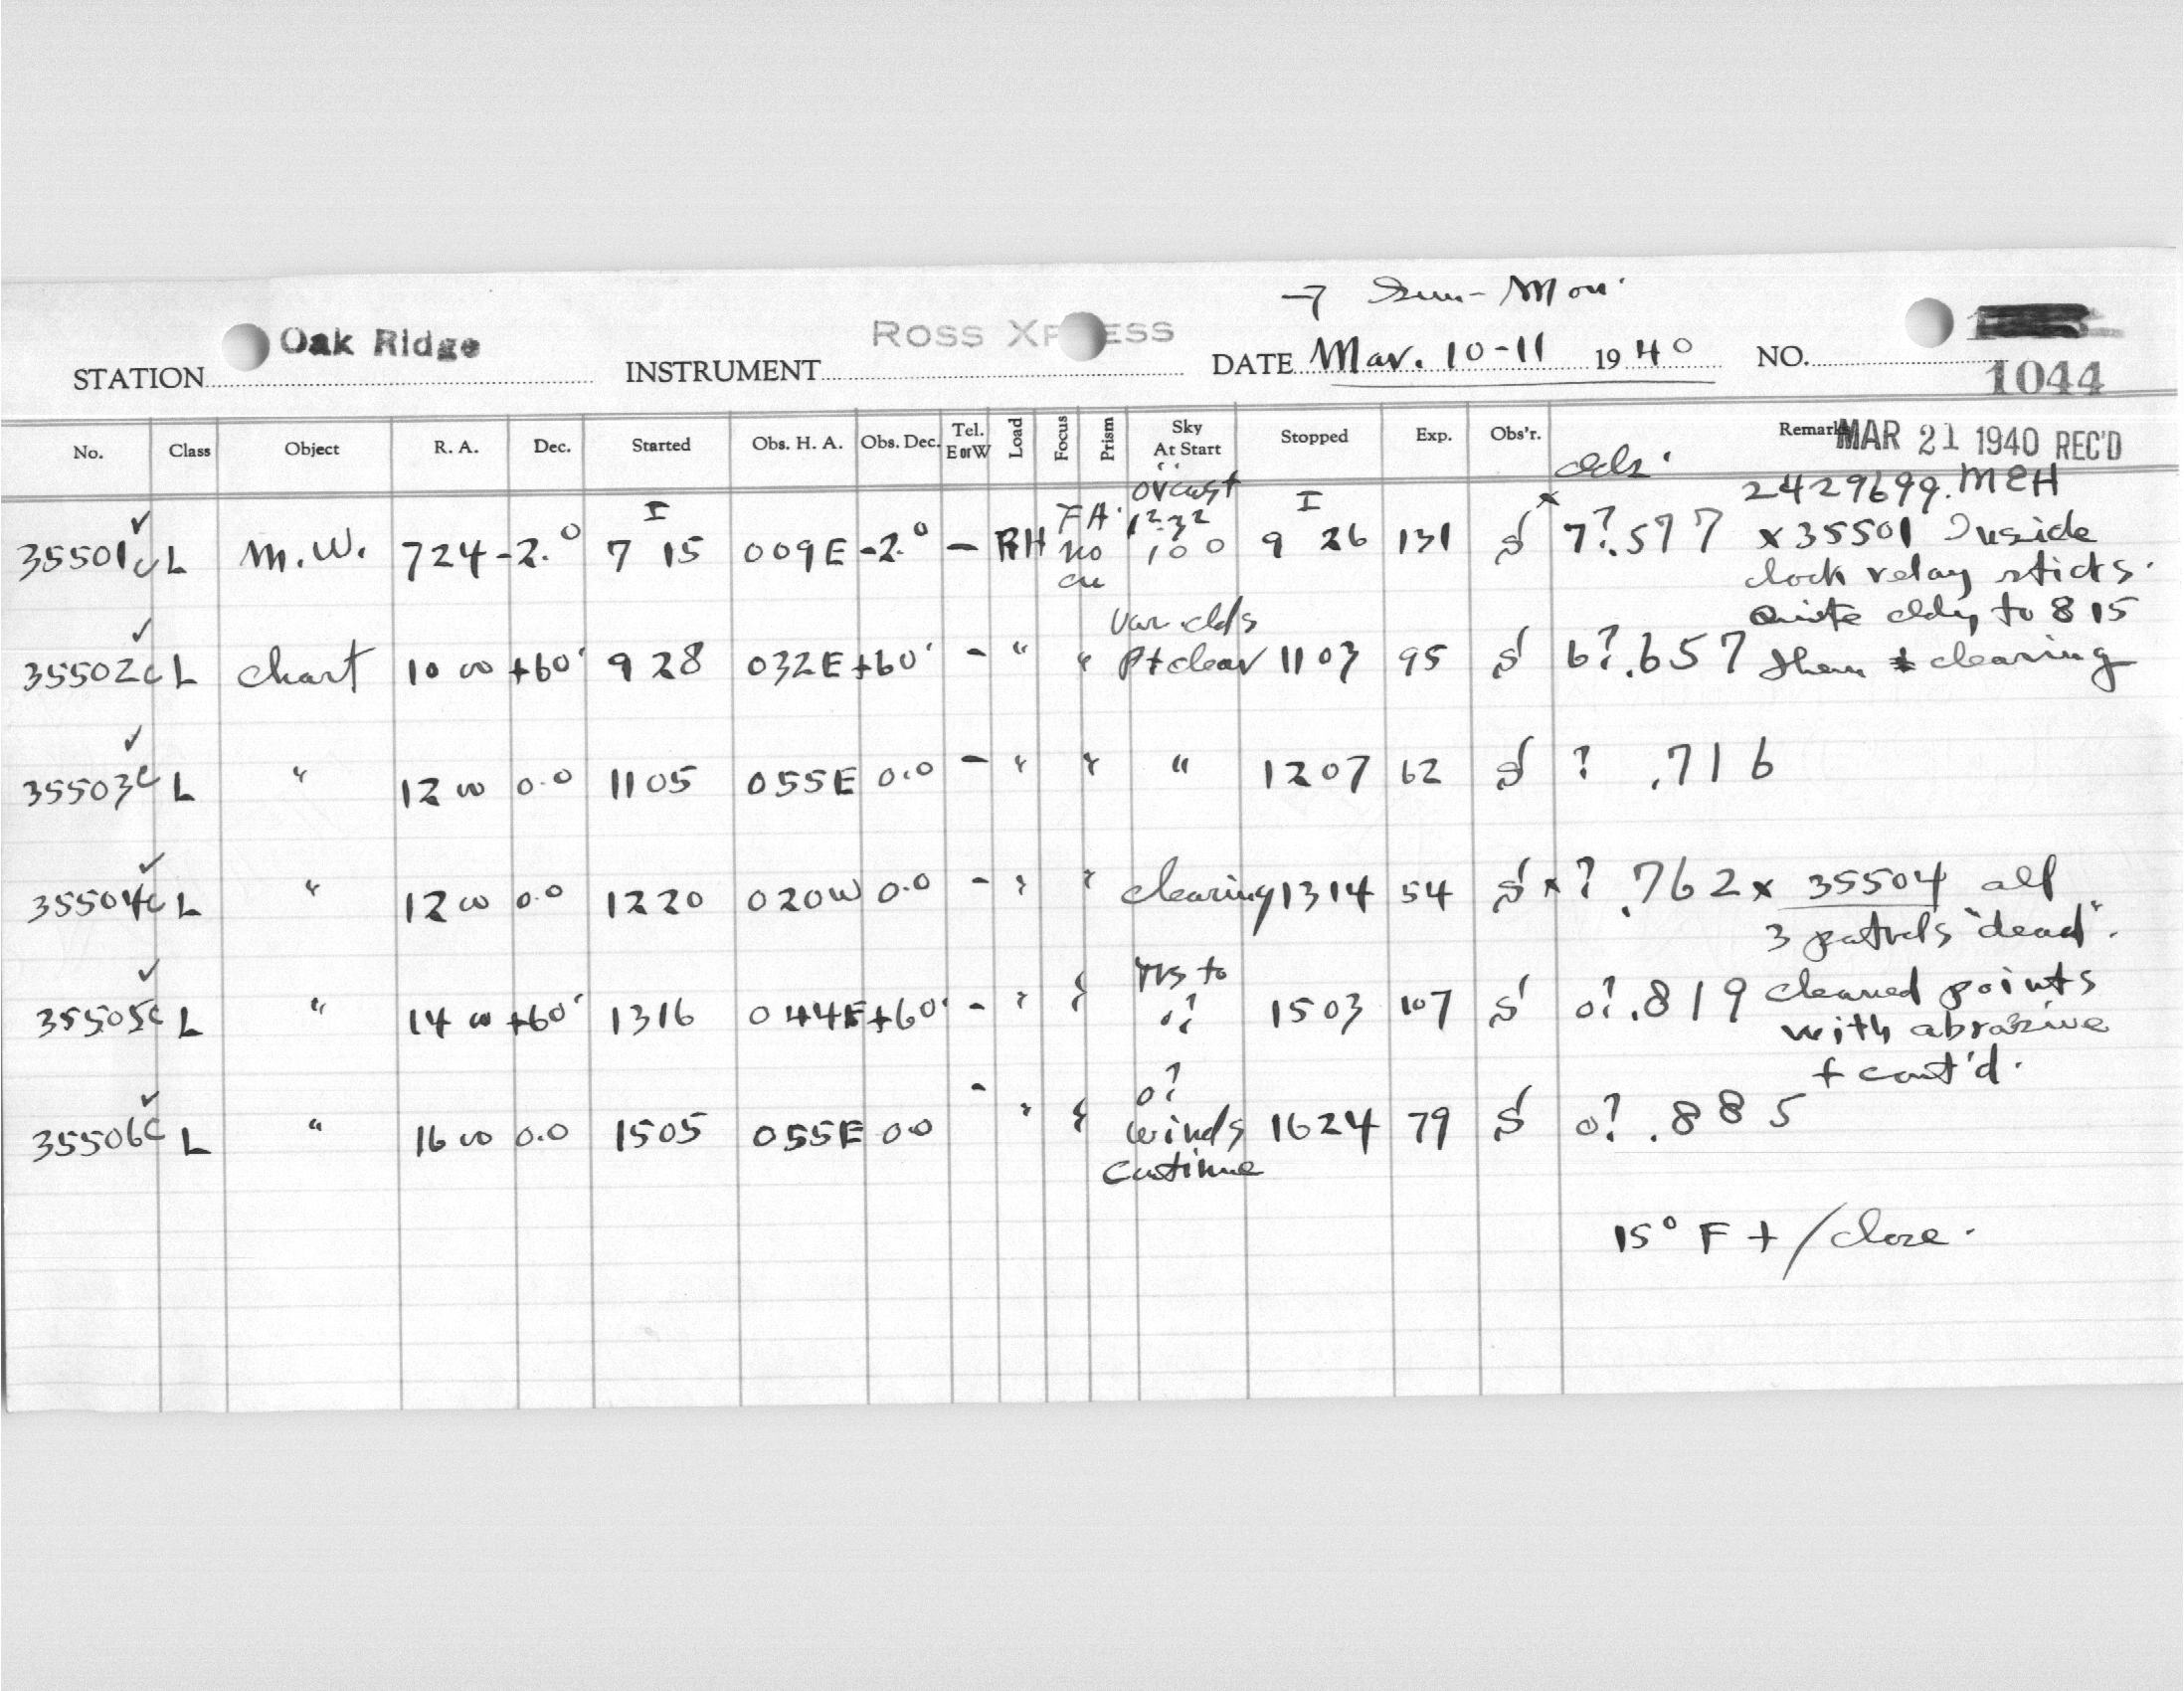 → Sun - Mon.
STATION Oak Ridge INSTRUMENT ROSS XPRESS DATE Mar. 10-11 1940 NO. 1044
No. Class Object R. A. Dec. Started Obs. H. A. Obs. Dec. Tel. E or W Load Focus Prism Sky At Start Stopped Exp. Obs'r. Remarks MAR 21 1940 REC'D
clds. 2429699. MEH
35501c L M.W. 7 24 -2.° I 7 15 0 09E -2.° - RH FA. no cu ovcast 1²-3² 100 I 9 26 131 S x 7?.577 x 35501 Inside
clock relay sticks.
Quite cldy to 8 15
35502c L chart 10 00 +60° 9 28 032E +60° - " " Var. clds Pt clear 1103 95 S 6?.657 then clearing
35503c L " 12 00 0.0 1105 055E 0.0 - " " " 1207 62 S ? .716
35504c L " 12 00 0.0 1220 020W 0.0 - " " clearing 1314 54 S x ? .762 x 35504 all
3 patrols "dead".
35505c L " 14 00 +60° 1316 044E +60° - " " to 0? 1503 107 S 0?.819 cleaned points
with abrasive
+ cont'd.
35506c L " 16 00 0.0 1505 055E 0.0 - " " 0? winds continue 1624 79 S 0? .885
15° F + / close.